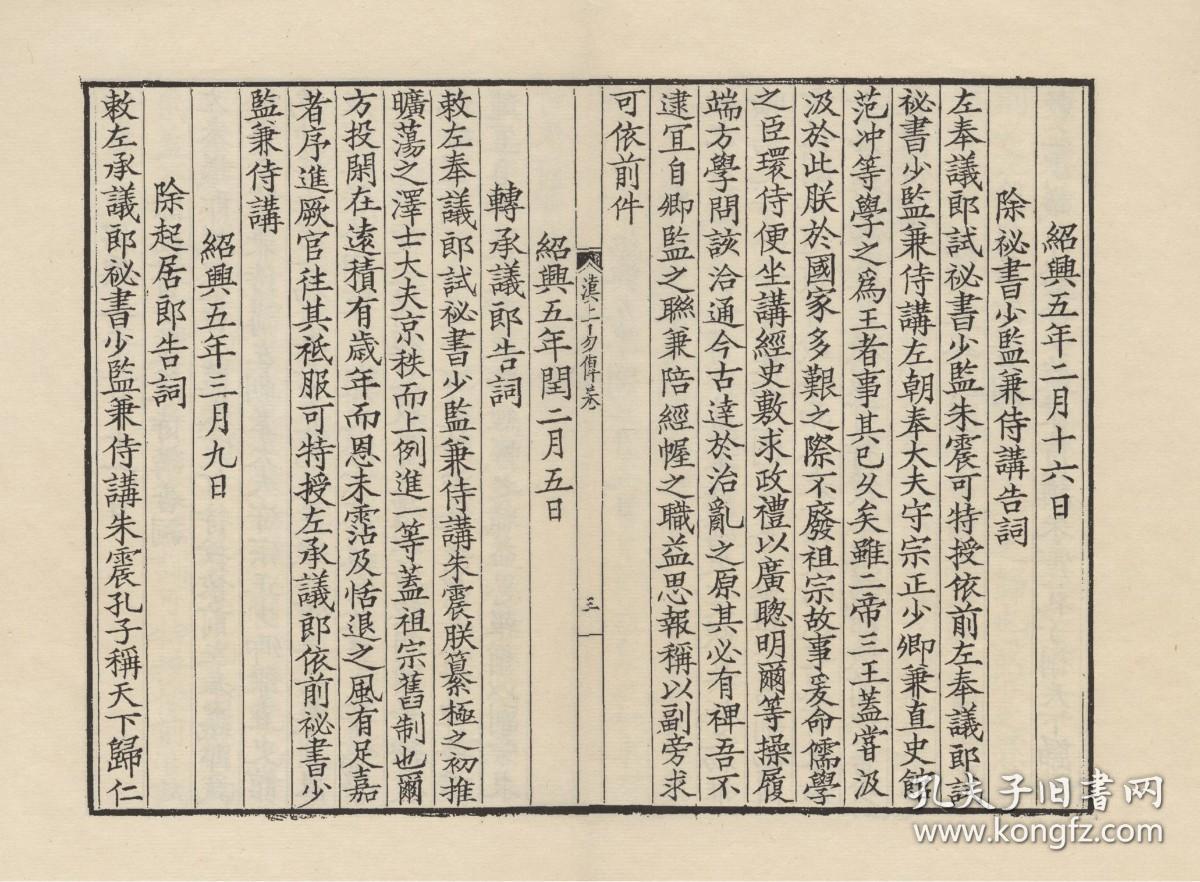 紹興五年二月十六日
除祕書少監兼侍講告詞
左奉議郎試祕書少監朱震可特授依前左奉議郎試
祕書少監兼侍講左朝奉大夫守宗正少卿兼直史館
范冲等學之爲王者事其已久矣雖二帝三王蓋嘗汲
汲於此朕於國家多艱之際不廢祖宗故事爰命儒學
之臣環侍便坐講經史敷求政禮以廣聰明爾等操履
端方學問該洽通今古達於治亂之原其必有裨吾不
逮冝自卿監之聮兼陪經幄之職益思報稱以副旁求
可依前件
漢上易傳卷
三
紹興五年閏二月五日
轉承議郎告詞
敕左奉議郎試祕書少監兼侍講朱震朕纂極之初推
曠蕩之澤士大夫京秩而上例進一等蓋祖宗舊制也爾
方投閑在遠積有歲年而恩未霑及恬退之風有足嘉
者序進厥官往其祗服可特授左承議郎依前祕書少
監兼侍講
紹興五年三月九日
除起居郎告詞
敕左承議郎祕書少監兼侍講朱震孔子稱天下歸仁
孔夫子旧书网
www.kongfz.com